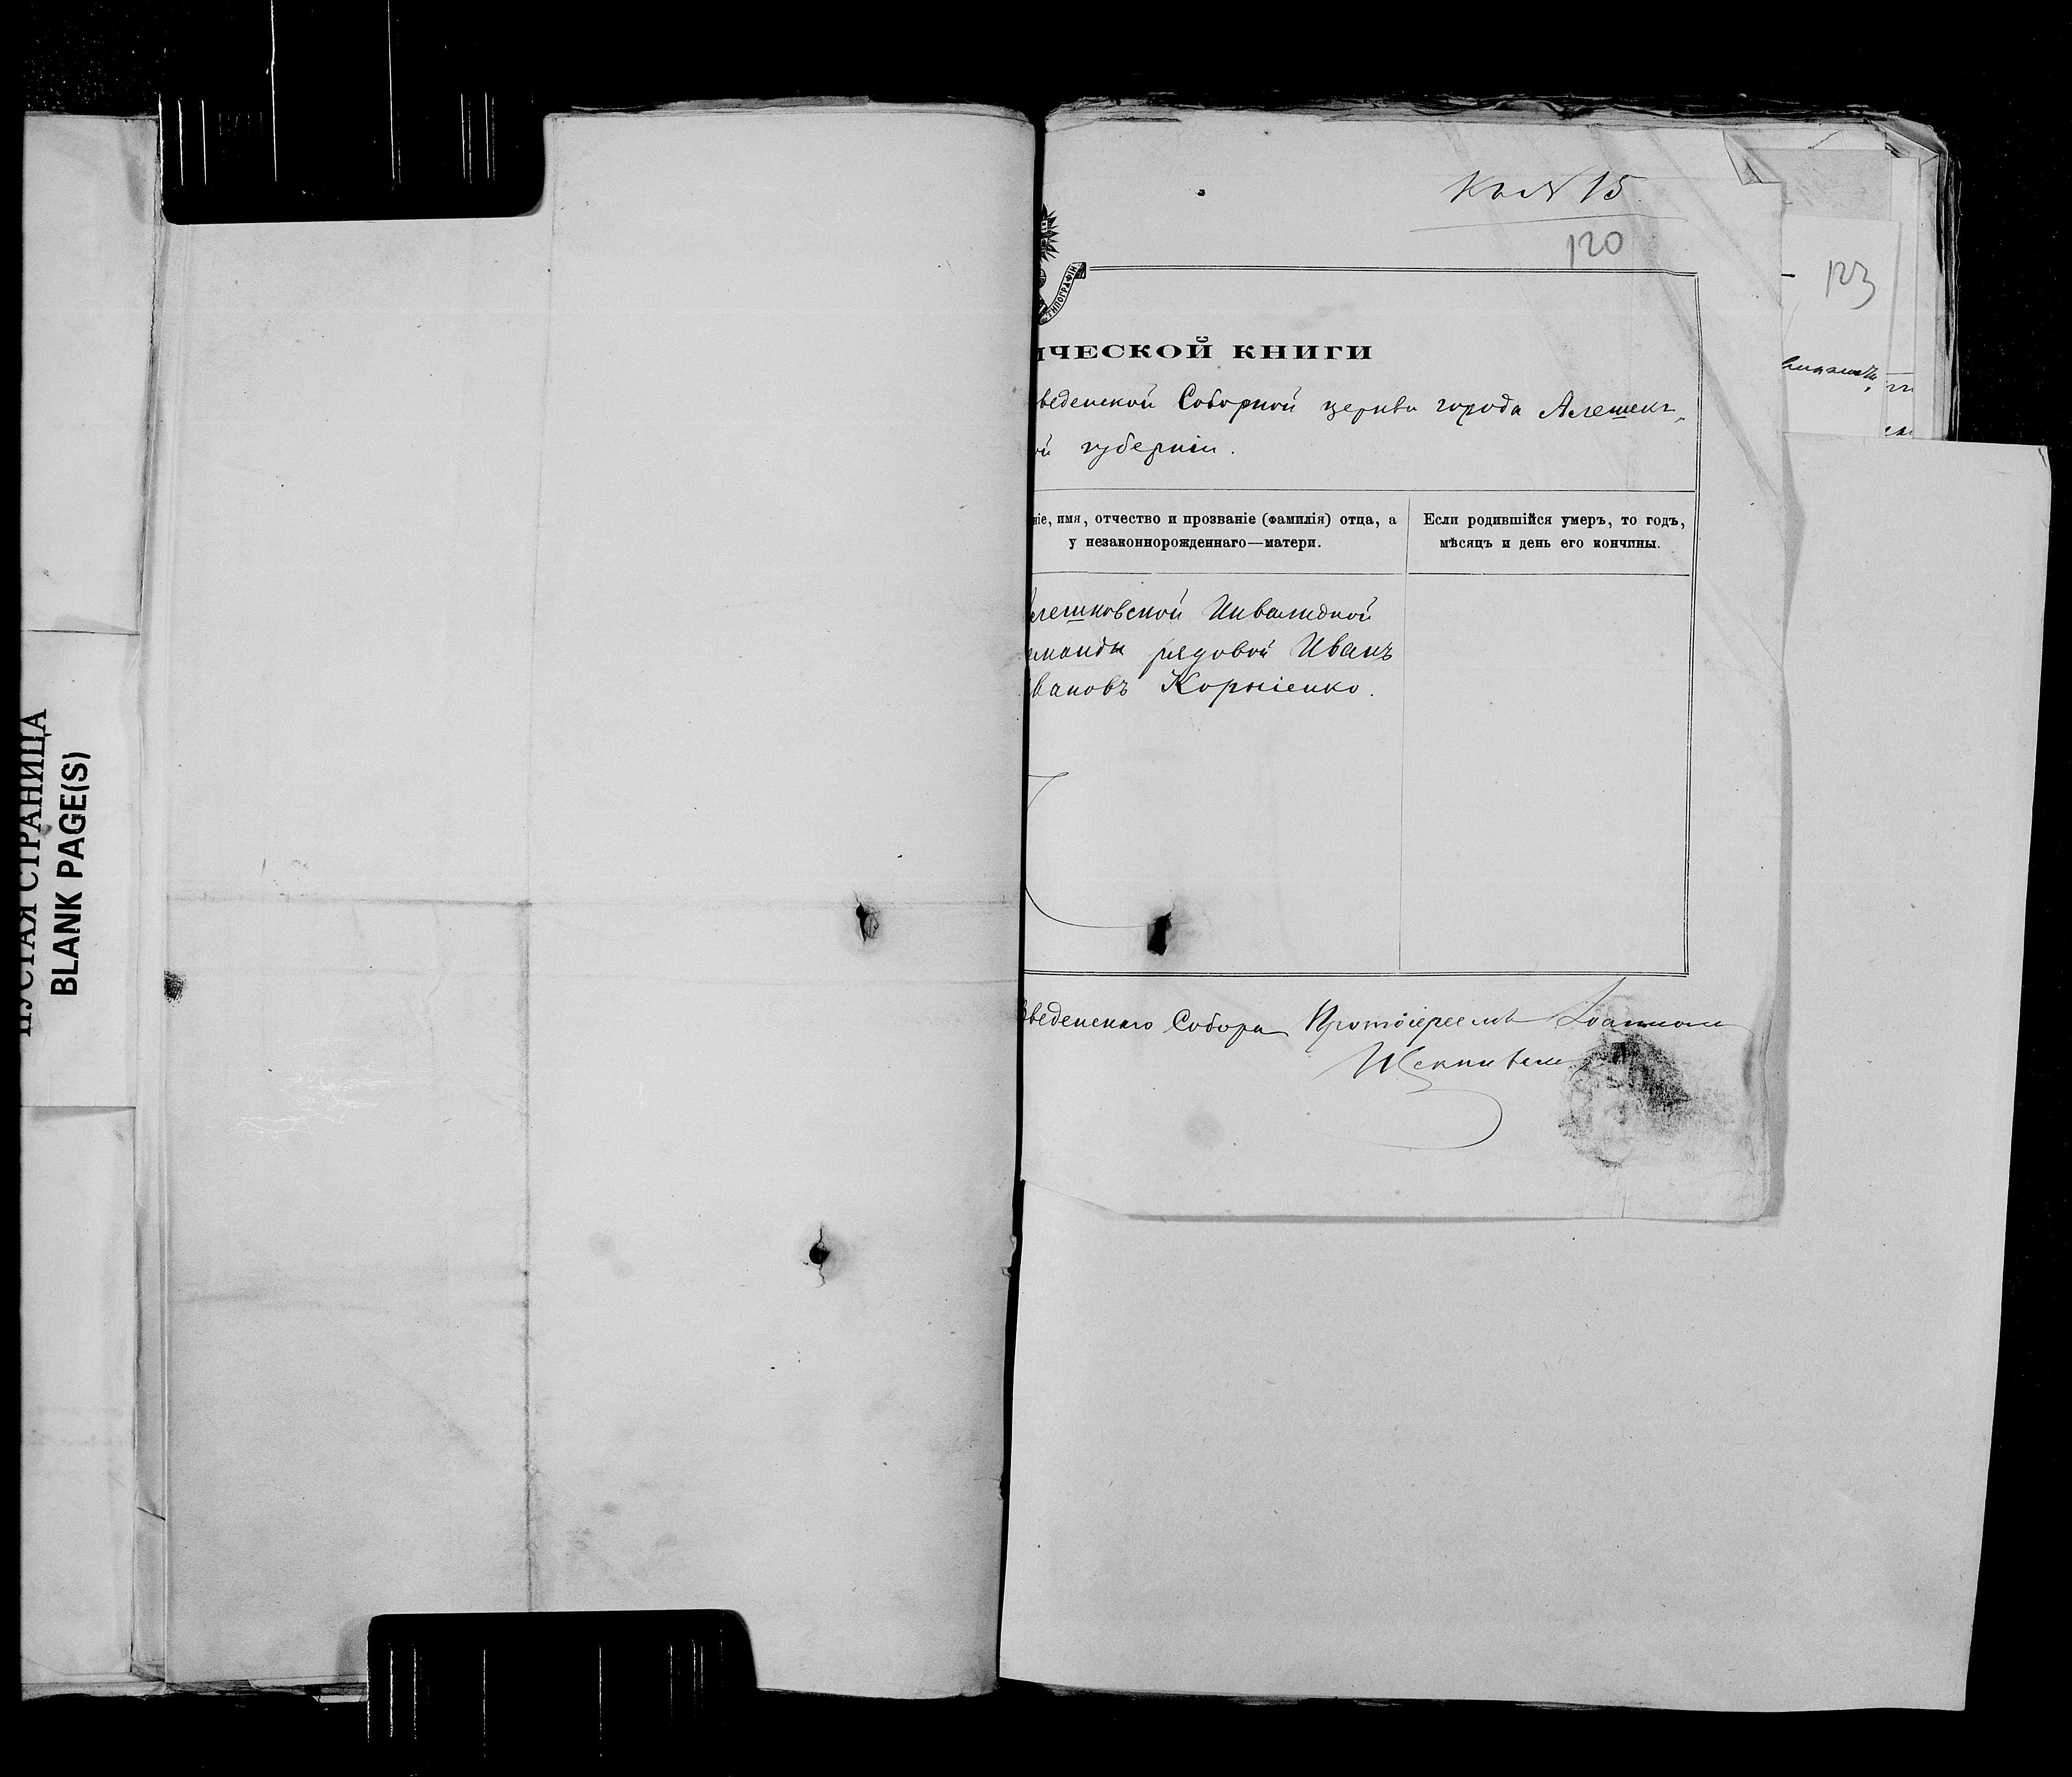 ПУСТАЯ СТРАНИЦА
BLANK PAGE(S)
Къ № 15
120
123
ТИПОГРАФІИ
ИЧЕСКОЙ КНИГИ
веденской Соборной церкви города Алешекъ,
ой губерніи.
ніе, имя, отчество и прозваніе (фамилія) отца, а
у незаконнорожденнаго—матери.
Если родившійся умеръ, то годъ,
мѣсяцъ и день его кончины.
лешковской Инвалидной
манды рядовой Иванъ
вановъ Корніенко.
веденскаго Собора Протоіереемъ Іоанномъ